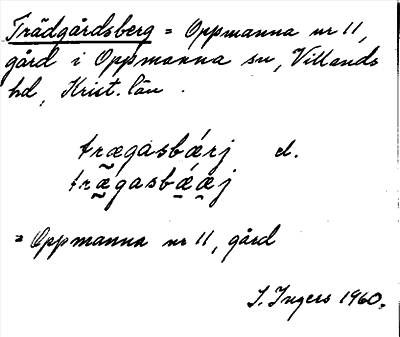 Trädgårdsberg = Oppmanna nr 11,
gård i Oppmanna sn, Villands
hd, Krist. län.
trægasbǽrj el.
træ̰gasbǽ̠æ̠j
= Oppmanna nr 11, gård
I. Ingers 1960.